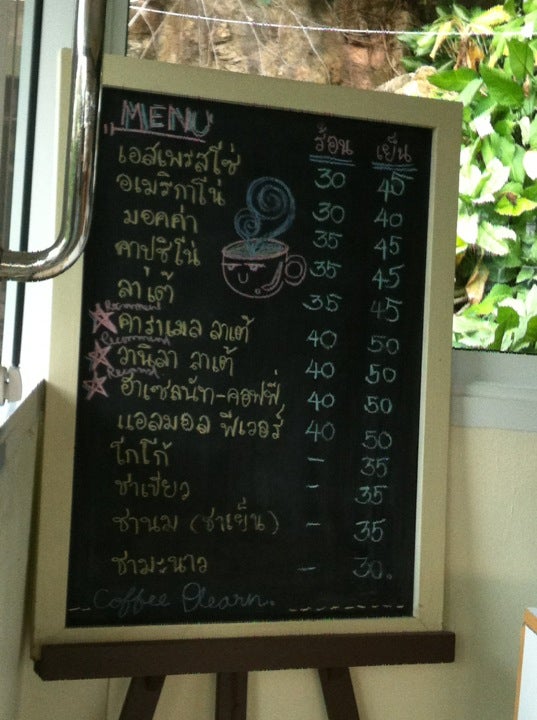 MENU ร้อน เย็น
เอสเพรสโซ่ 30 45
อเมริกาโน่ 30 40
มอคค่า 35 45
คาปูชิโน่ 35 45
ลาเต้ 35 45
Recommend
คาราเมล ลาเต้ 40 50
Recommend
วานิลา ลาเต้ 40 50
Recommend
ฮาเซลนัท-คอฟฟี่ 40 50
แอลมอล ฟีเวอร์ 40 50
โกโก้ - 35
ชาเขียว - 35
ชานม (ชาเย็น) - 35
ชามะนาว - 30.
Coffee Plearn.